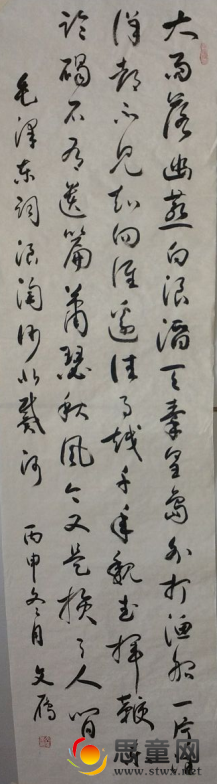 大雨落幽燕白浪滔天秦皇岛外打渔船一片汪
洋都不见知向谁边往事越千年魏武挥鞭东
临碣石有遗篇萧瑟秋风今又是换了人间
毛泽东词浪淘沙北戴河
丙申冬月 文
思童网